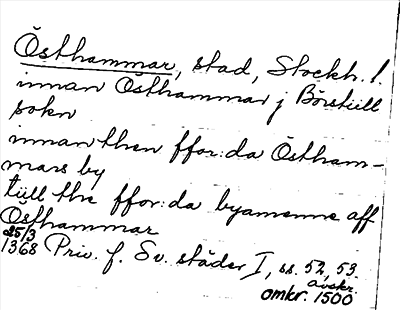 Östhammar, stad, Stockh. l.
innan Östhammar j Börstill
sokn
innan then ffor:da Östham-
mars by
till the ffor:da byamenne aff
Östhammar
25/3
1368 Priv. f. Sv. städer I, ss. 52, 53.
avskr.
omkr. 1500